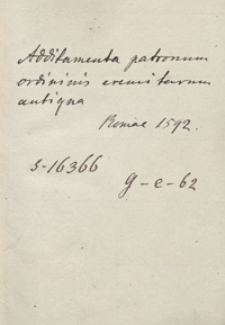 Additamenta patronum
ordininis eremitarum
antiqua
Romae 1592.
S-16366
g-e-62